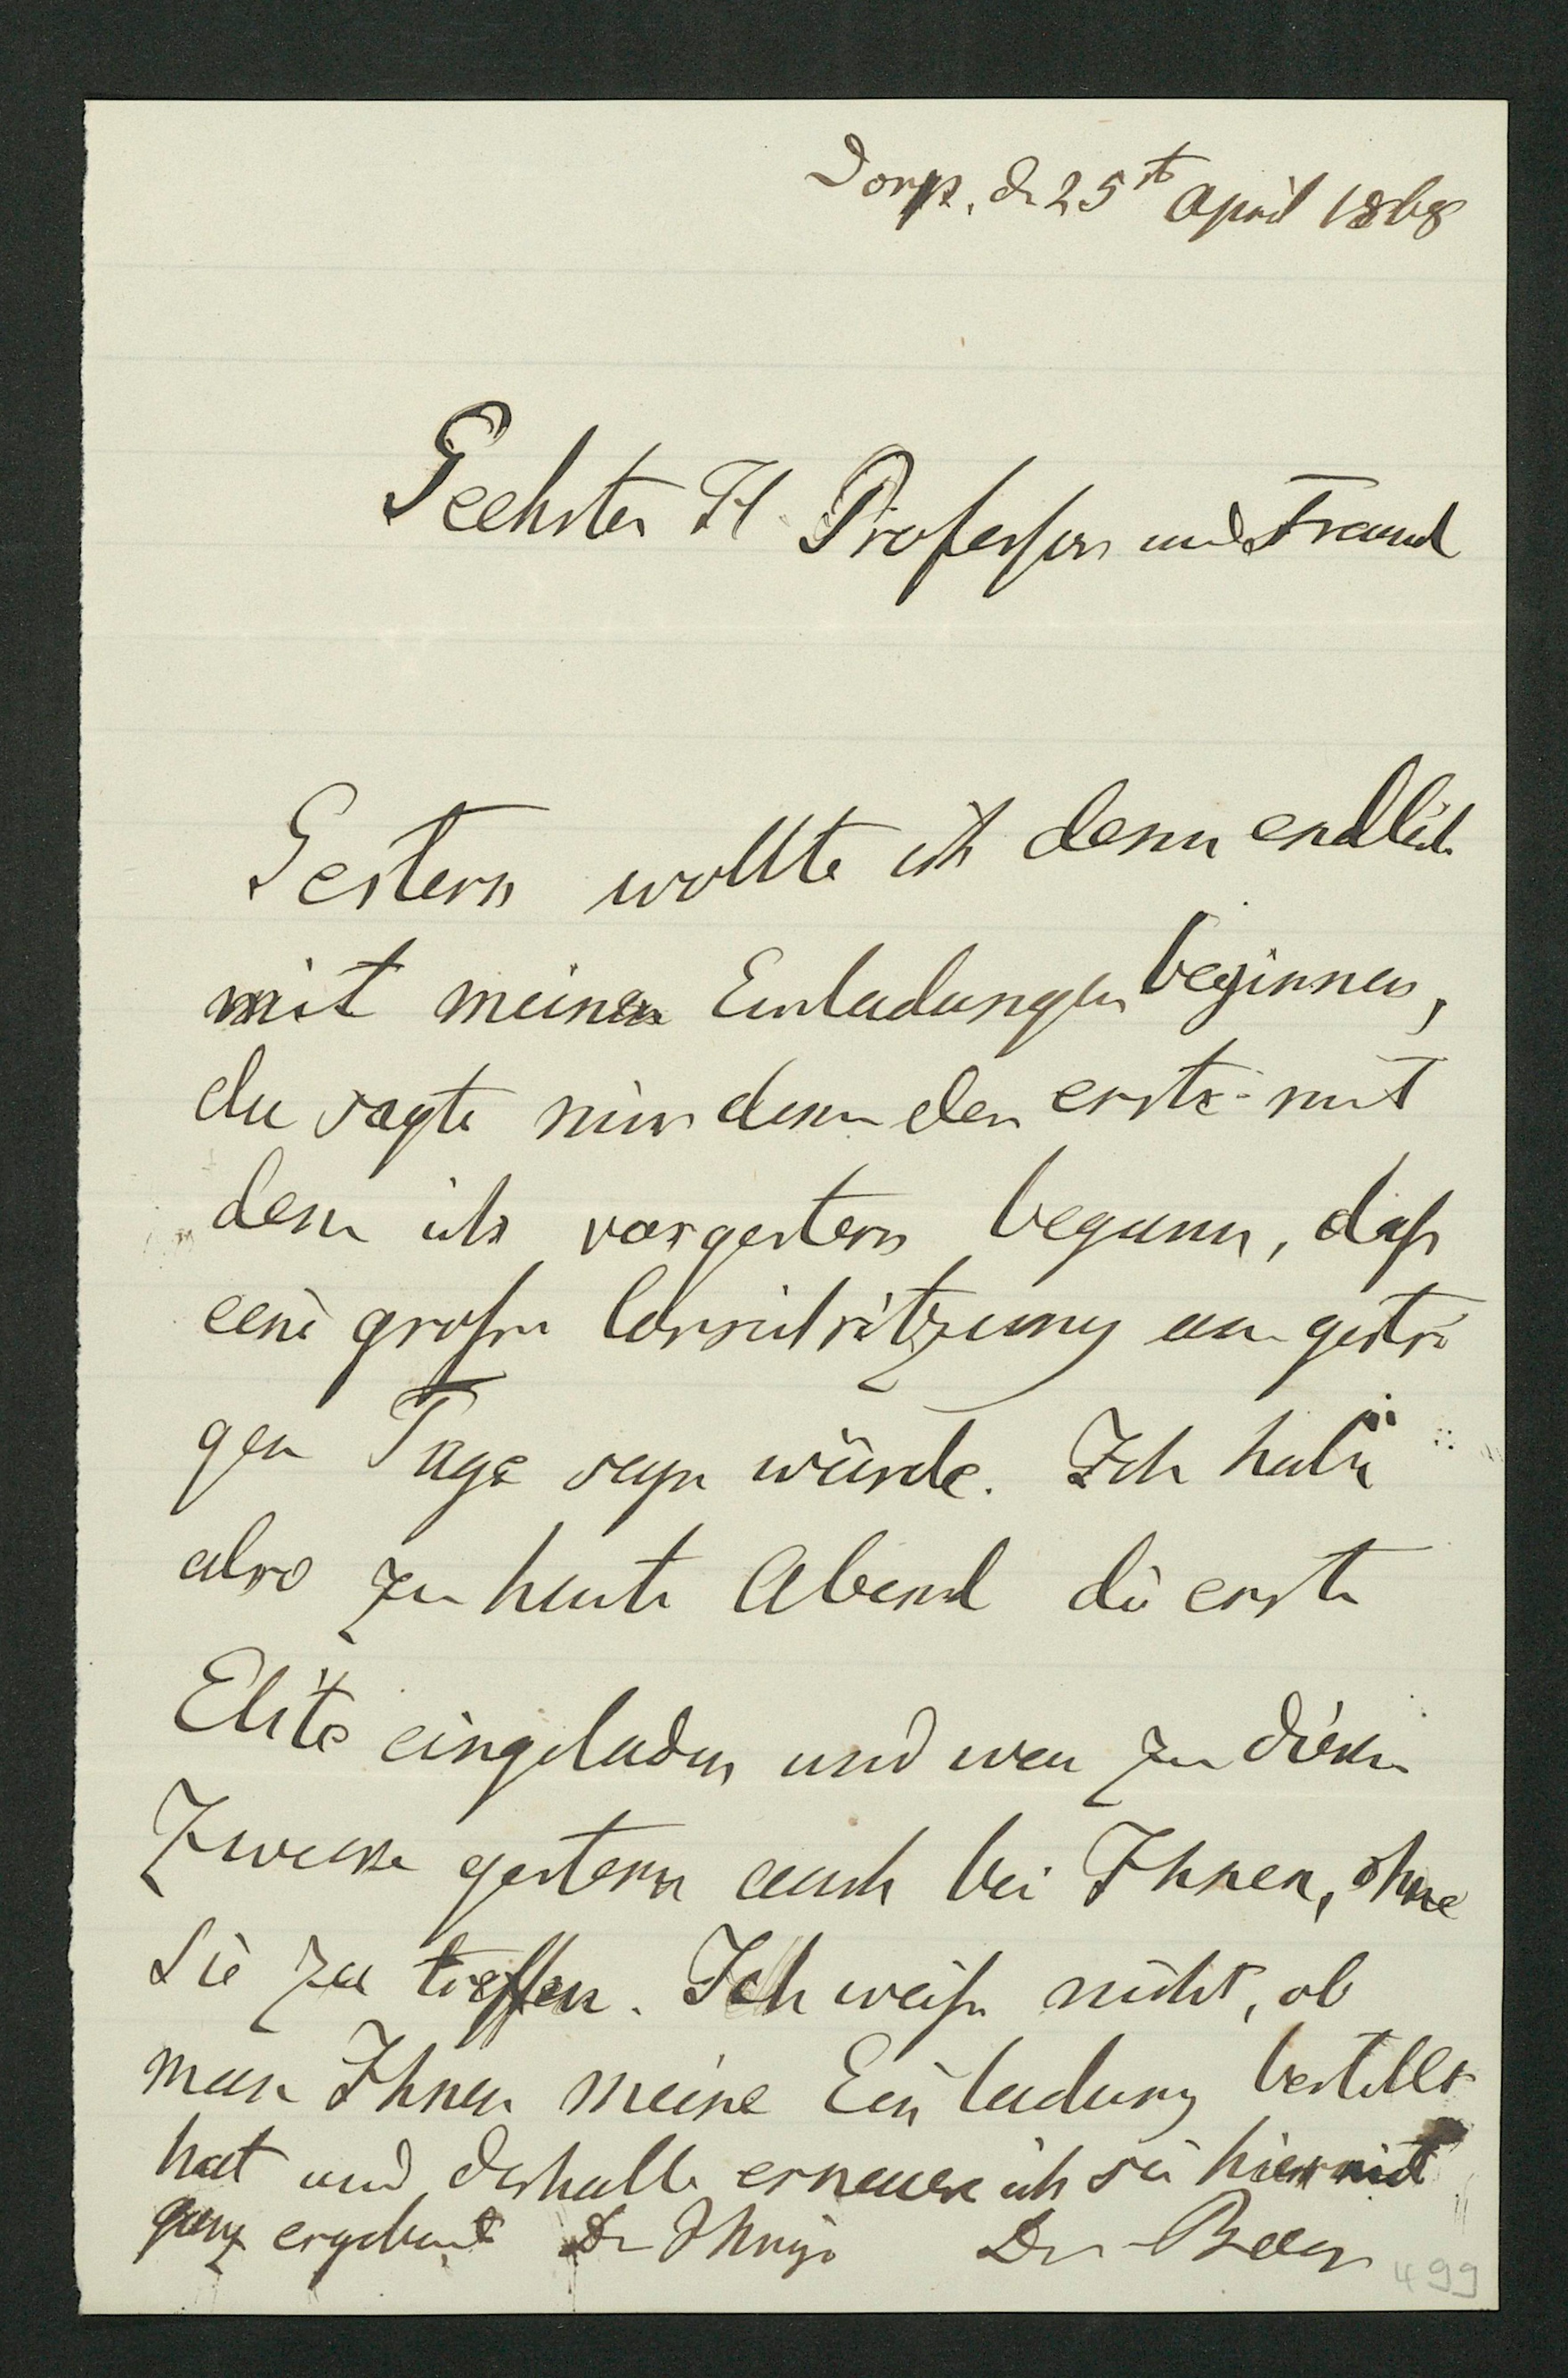 Dorp. d 25st April 1868
Geehrter H Professor und Freund
Gestern wollte ich denn endlich
mit meinen Einladungen beginnen,
da sagte mir denn der erste mit
dem ich vorgestern begann, daß
eine große Conseilsitzung am gestri
gen Tage seyn würde. Ich habe
also zu heute Abend die erste
Elite eingeladen und war zu diesem
Zwecke gestern auch bei Ihnen, ohne
Sie zu treffen. Ich weiß nicht, ob
man Ihnen meine Einladung bestellt
hat und deshalb erneuere ich sie hiermit
ganz ergebenst Der Ihrige Dr Baer
499